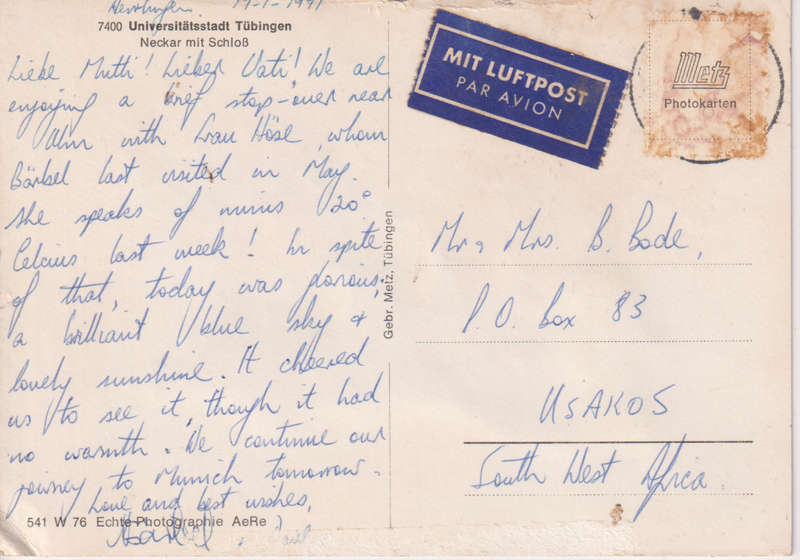 Herrlingen 19-1-1991
7400 Universitätsstadt Tübingen
Neckar mit Schloß
Liebe Mutti! Lieber Vati! We are
enjoying a brief stop-over near
Ulm with Frau Höse, whom
Bärbel last visited in May.
She speaks of minus 20°
Celcius last week! In spite
of that, today was glorious;
a brilliant blue sky &
lovely sunshine. It cheered
us to see it, though it had
no warmth. We continue our
journey to Munich tomorrow.
Love and best wishes,
541 W 76 Echte Photographie AeRe
Gebr. Metz, Tübingen
MIT LUFTPOST
PAR AVION
Metz
Photokarten
Mr & Mrs. B. Bode,
P.O. Box 83
USAKOS
South West Africa